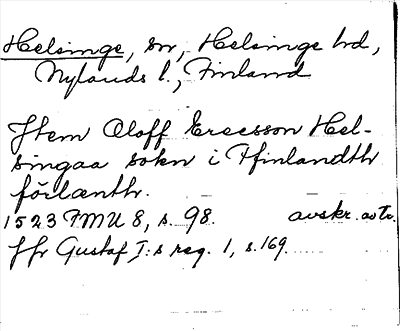 Helsinge, sn, Helsinge hd,
Nylands l., Finland
Jtem Oloff Ericsson Hel-
singaa sokn i Ffinlandth
förlænth.
1523 FMU 8, s. 98. avskr. av tr.
Jfr Gustaf I:s reg. 1, s. 169.